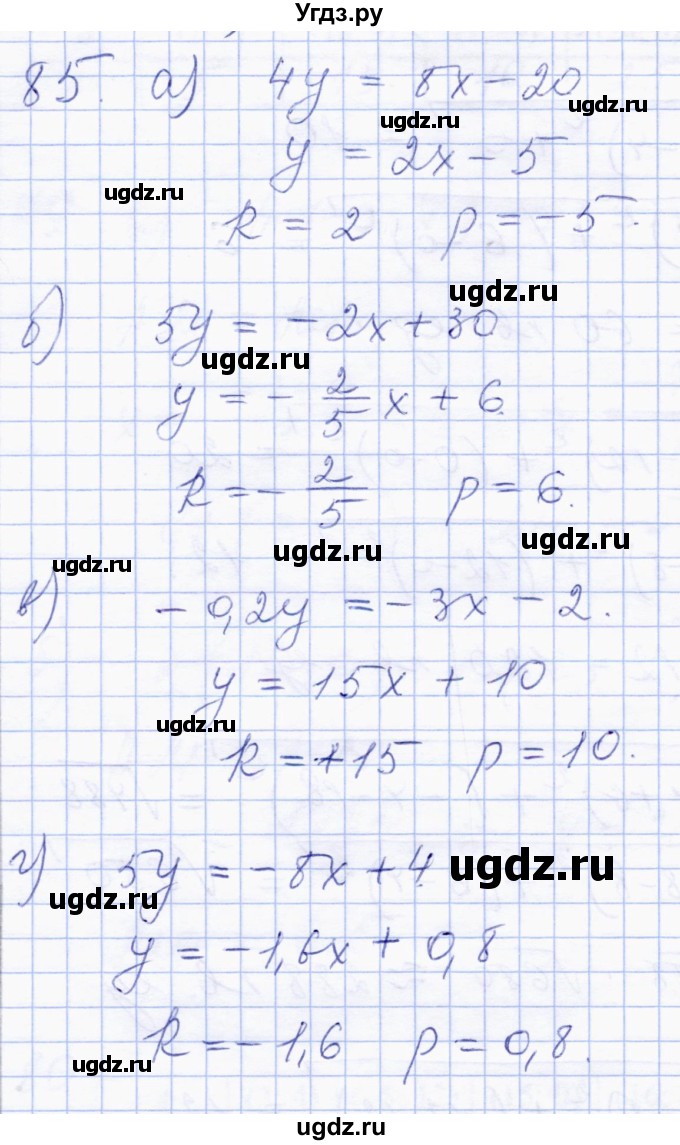 Угдз.ру
85. а) 4y = 8x - 20
ugdz.ru ugdz.ru
y = 2x - 5
ugdz.ru
k = 2 p = -5.
ugdz.ru
б) 5y = -2x + 30
ugdz.ru
y = - 2/5 x + 6.
k = - 2/5 p = 6.
ugdz.ru ugdz.ru ugdz.ru
в) -0,2y = -3x - 2.
y = 15x + 10
ugdz.ru
k = +15 p = 10.
г) 5y = -8x + 4.
ugdz.ru ugdz.ru
y = -1,6x + 0,8
k = -1,6 p = 0,8.
ugdz.ru
ugdz.ru